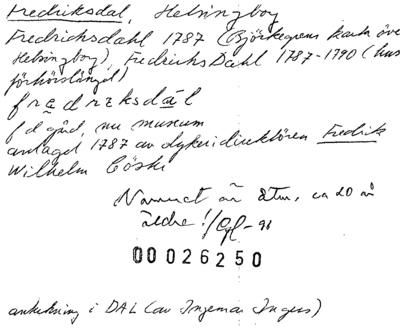 Fredriksdal, Helsingborg
Fredrichsdahl 1787 (Björkegrens karta över
Helsingborg), FredrichsDahl 1787-1790 (hus
förhörslängd)
frædrɛksdāl
f d gård, nu museum
anlagd 1787 av dykeridirektören Fredrik
Wilhelm Cöster
Namnet är åtm. ca 20 år
äldre!
00026250
anteckning i DAL (av Ingemar Ingers)